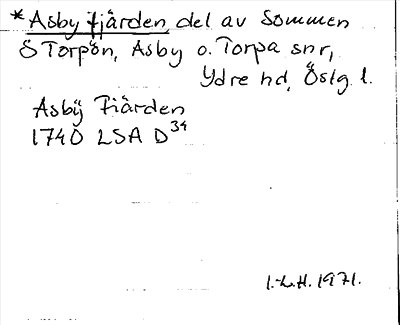 *Asby fjärden del av Sommen
Ö Torpön, Asby o. Torpa snr,
Ydre hd, Östg l.
Asbÿ Fiärden
1740 LSA D34
I.L.H. 1971.